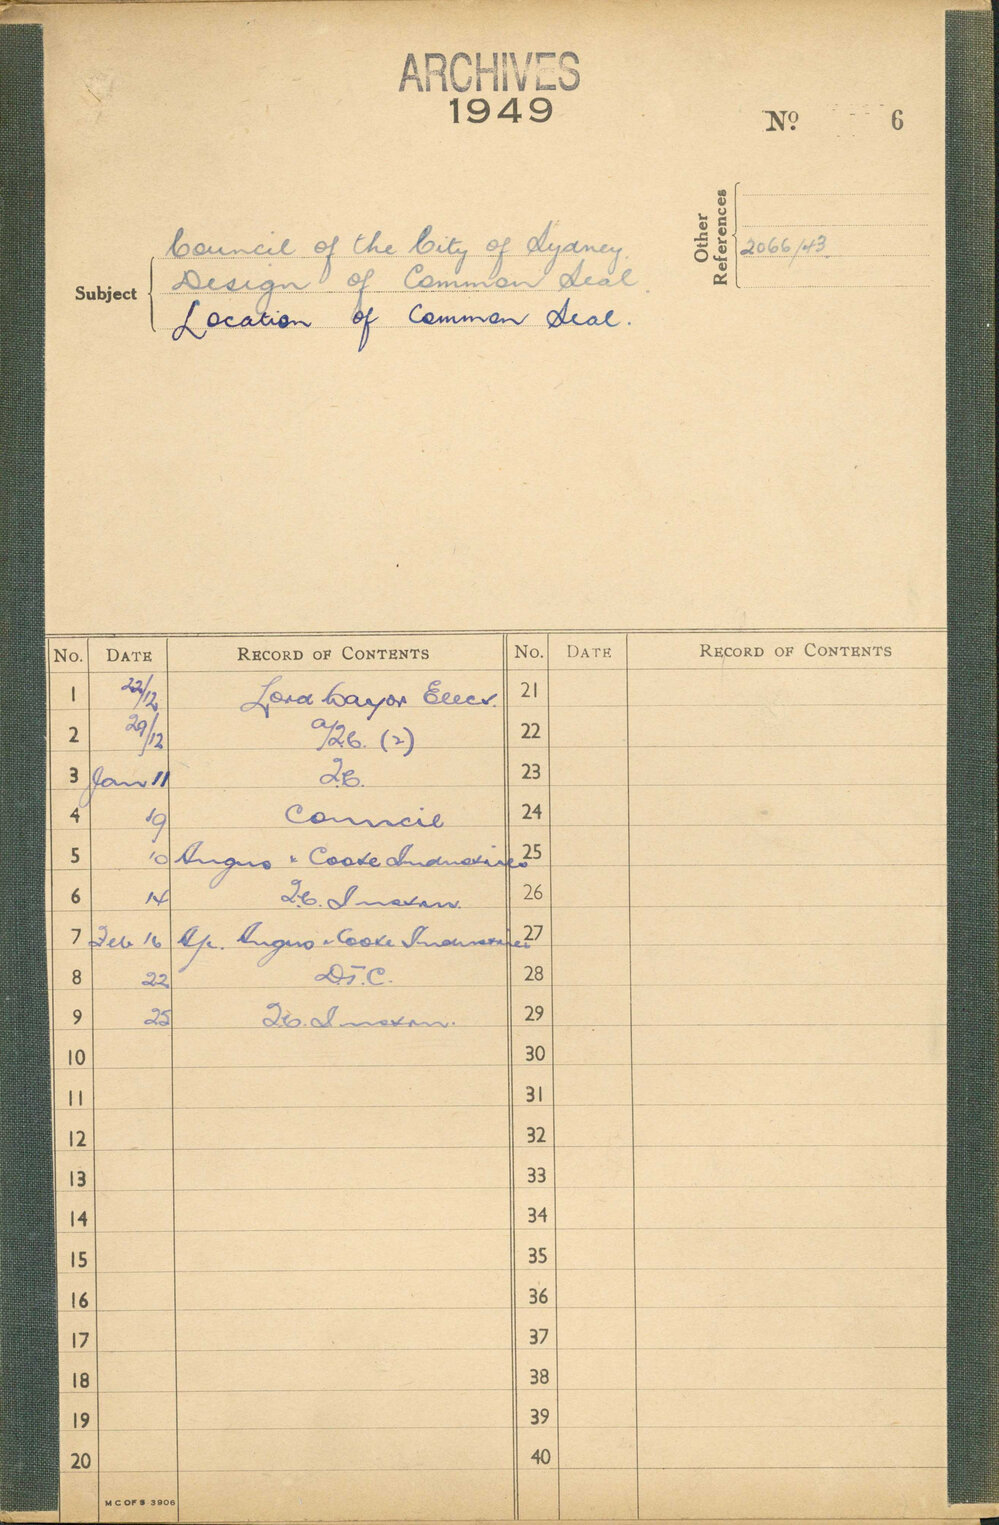 ARCHIVES
1949
No. 6
Other References
2066/43
Subject
Council of the City of Sydney.
Design of Common Seal.
Location of Common Seal.
No. DATE RECORD OF CONTENTS No. DATE RECORD OF CONTENTS
1 22/12 Lord Mayor Elect. 21
2 29/12 (2) 22
3 Jan 11 23
4 19 Council 24
5 10 Angus & Coote Industries 25
6 14 26
7 Feb 16 Angus & Coote Industries 27
8 22 D.T.C. 28
9 25 29
10 30
11 31
12 32
13 33
14 34
15 35
16 36
17 37
18 38
19 39
20 40
M C OF S 3906